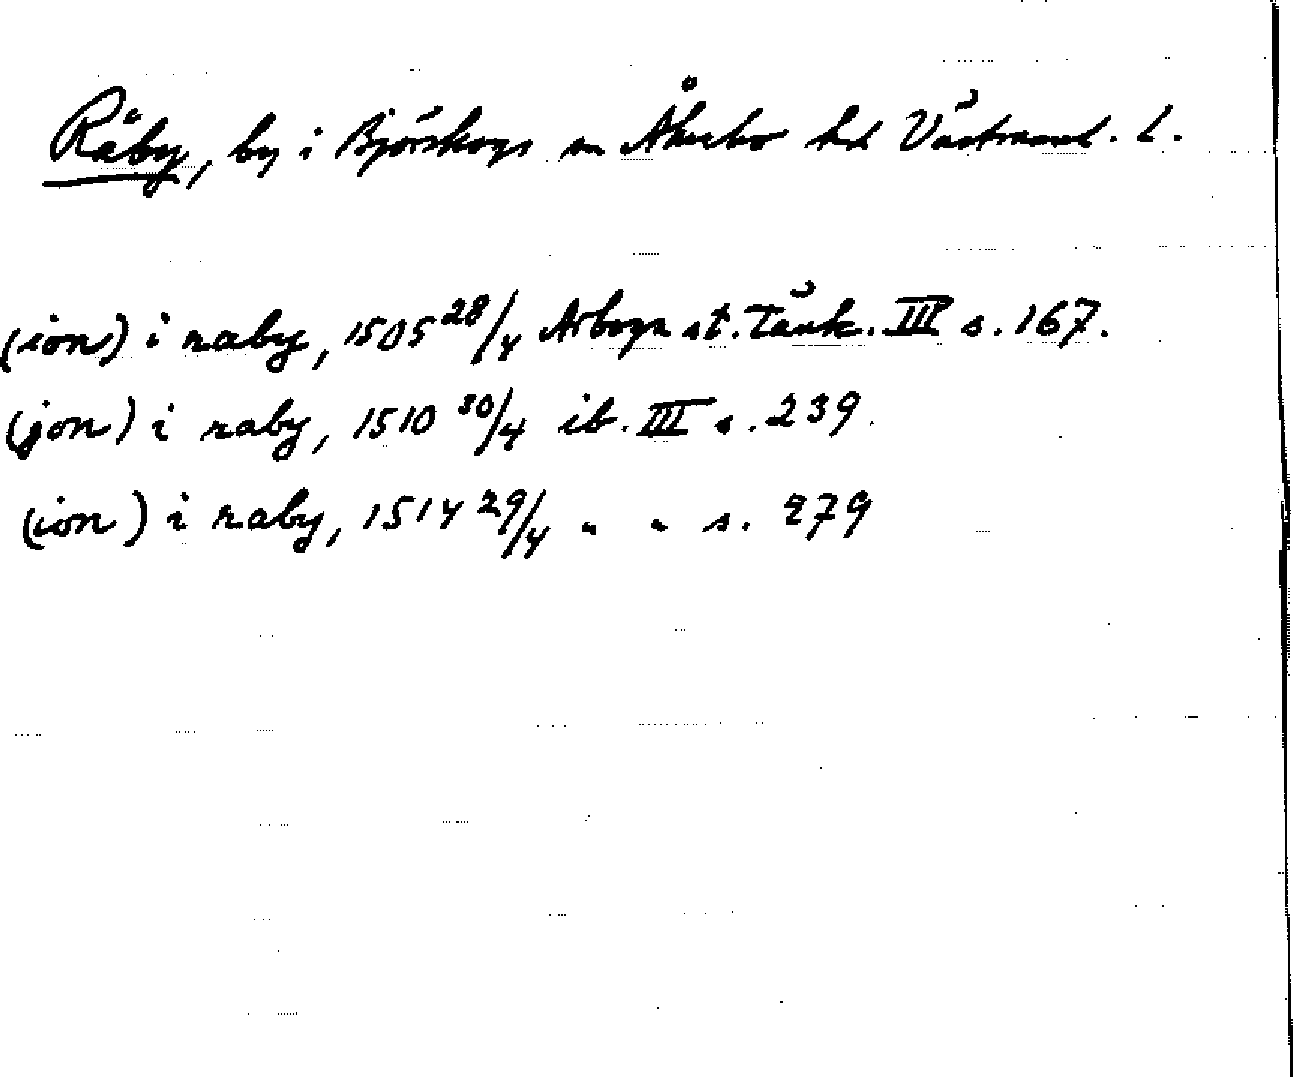 Råby, by i Björskogs sn Åkerbo hd Västmanl. L.
(ion) i raby, 1505 28/4 Arboga st. Tänk. III s. 167.
(jon) i raby, 1510 30/4 ib. III s. 239.
(ion) i raby, 1514 29/4 " " s. 279